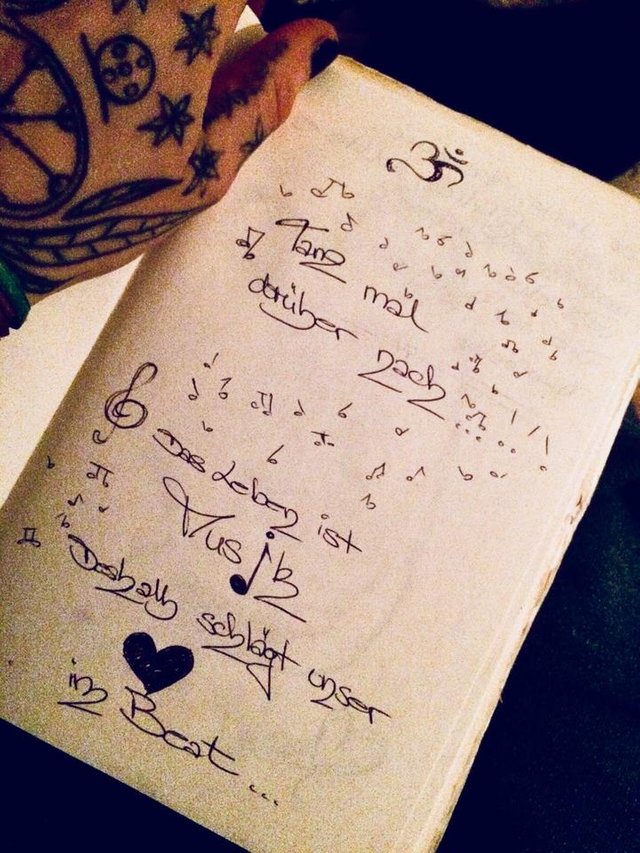 ॐ
Tanz mal
darüber nach.....!!!
Das Leben ist
Musik
Deshalb schlägt unser
♥
im Beat...